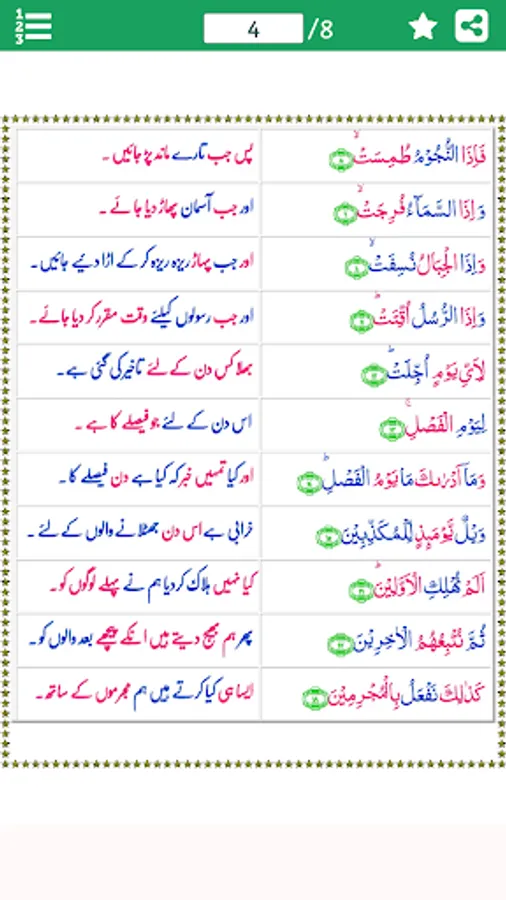 1 2 3
4 /8
فَاِذَا النُّجُوْمُ طُمِسَتْۙ پس جب تارے ماند پڑ جائیں ۔
وَاِذَا السَّمَآءُ فُرِجَتْۙ اور جب آسمان پھاڑ دیا جائے ۔
وَاِذَا الْجِبَالُ نُسِفَتْۙ اور جب پہاڑ ریزہ ریزہ کر کے اڑا دئیے جائیں ۔
وَاِذَا الرُّسُلُ اُقِّتَتْؕ اور جب رسولوں کیلئے وقت مقرر کر دیا جائے ۔
لِاَيِّ يَوْمٍ اُجِّلَتْؕ بھلا کس دن کے لئے تاخیر کی گئی ہے ۔
لِيَوْمِ الْفَصْلِۚ اس دن کے لئے جو فیصلے کا ہے ۔
وَمَاۤ اَدْرٰىكَ مَا يَوْمُ الْفَصْلِؕ اور کیا تمہیں خبر کہ کیا ہے دن فیصلے کا ۔
وَيْلٌ يَّوْمَىِٕذٍ لِّلْمُكَذِّبِيْنَ خرابی ہے اس دن جھٹلانے والوں کے لئے ۔
اَلَمْ نُهْلِكِ الْاَوَّلِيْنَؕ کیا نہیں ہلاک کر دیا ہم نے پہلے لوگوں کو ۔
ثُمَّ نُتْبِعُهُمُ الْاٰخِرِيْنَ پھر ہم بھیج دیتے ہیں انکے پیچھے بعد والوں کو ۔
كَذٰلِكَ نَفْعَلُ بِالْمُجْرِمِيْنَ ایسا ہی کیا کرتے ہیں ہم مجرموں کے ساتھ ۔